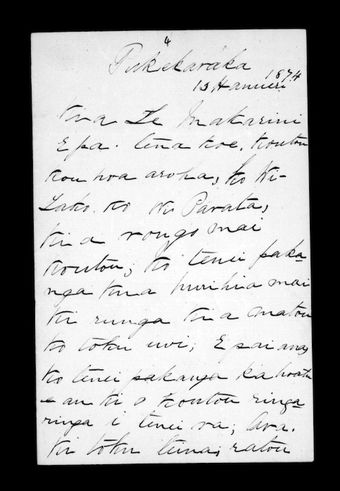 4
Pukekaraka
13 Hanueri 1874
Kia Te Makarini
E pa. tena koe, koutou
kou hoa aroha, ko Wi-
Tako. ko Wi Parata,
kia rongo mai
koutou, ko tenei paka-
nga kua hurihia mai
ki runga kia matou
ko toku iwi, E pai ana,
ko tenei pakanga ka hoatu
e au ki o koutou ringa-
ringa i tenei ra, Ara.
ki toku teina, ratou